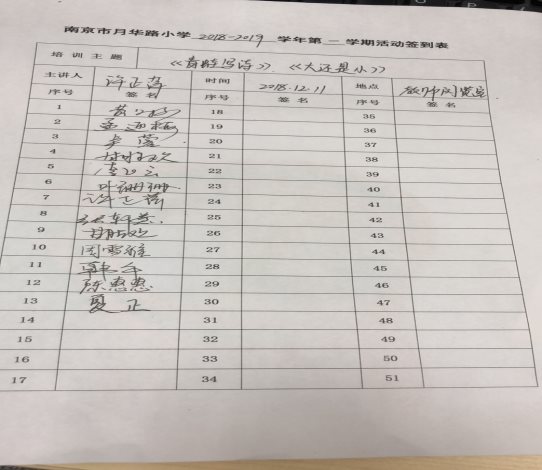 南京市月华路小学 2018-2019 学年第一学期活动签到表
培训主题 《青蛙写诗》《大还是小》
主讲人 许正芳 时间 2018.12.11 地点
序号 签名 序号 签名 序号 签名
1 18 35
2 19 36
3 20 37
4 21 38
5 22 39
6 叶珊珊 23 40
7 24 41
8 25 42
9 26 43
10 周雪雅 27 44
11 28 45
12 陈惠惠 29 46
13 夏正 30 47
14 31 48
15 32 49
16 33 50
17 34 51